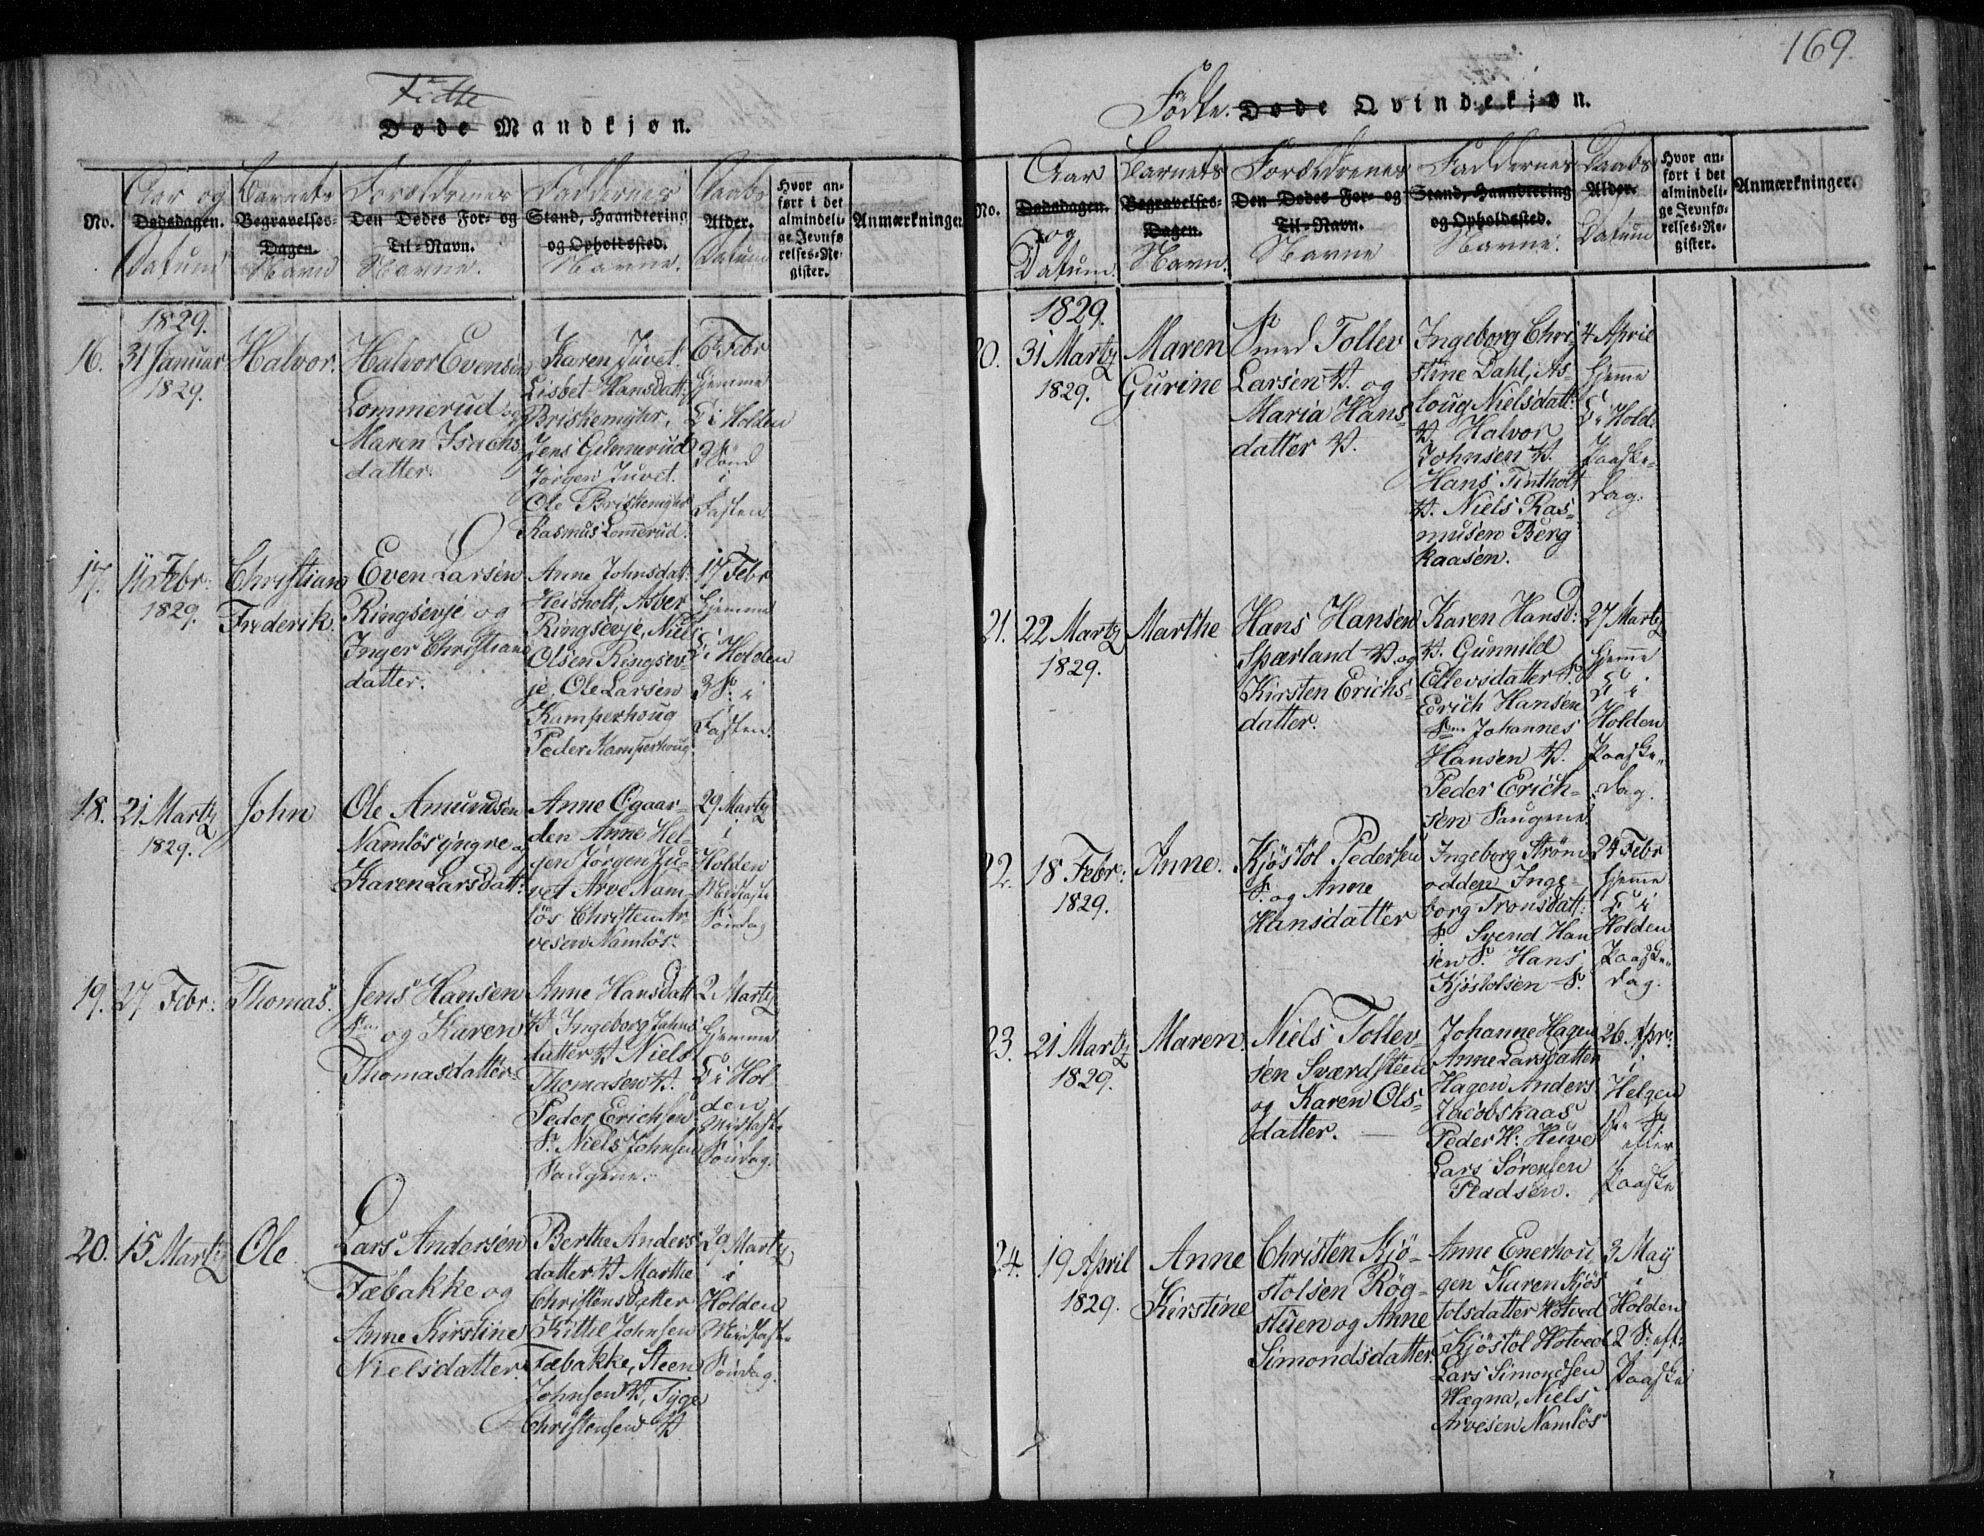 169.
Födte
Døde Mandkjøn.
No.
Aar og
Dødsdagen.
Datum
Barnets
Begravelses-
Dagen.
Navn
Forældrenes
Den Dødes For- og
Til-Navn.
Navne.
Faddernes
Stand, Haandtering
og Opholdssted.
Navne.
Daabs
Alder.
Datum
Hvor an-
ført i det
almindeli-
ge Jevnfø-
relses-Re-
gister.
Anmærkninger
1829.
16.
31 Januar
1829.
Halvor.
Halvor Evensen
Lommerud og
Maren Isachs-
datter.
Karen Juvet.
Lisbet Hansdatt:
Briskemyhr,
Jens Gelmerud
Jørgen Juvet.
Ole Briskemyhr
Rasmus Lomerud.
6te Febr
hjemme
D i Holden
3 Sönd
i
Fasten.
17.
11 Febr:
1829.
Christian
Frederik.
Even Larsen
Ringsevje og
Inger Christians
datter.
Anne Johnsdatt:
Heisholt, Asver
Ringsevje, Niels
Olsen Ringsev
je, Ole Larsen
Kamperhoug
Peder Kamperhoug.
17 Febr
hjemme
D i Holden
3 S. i
Fasten.
18.
21 Martz
1829.
John
Ole Amundsen
Namlös yngre og
Karen Larsdatt:
Anne Ogaar-
den Anne Hel-
gen Jørgen Ju-
vet Arve Nam-
lös Christen Ar
vesen Namlös.
29 Martz
i
Holden
Midfaste
Söndag
19.
27 Febr:
Thomas.
Jens Hansen
og Karen
Thomasdatter.
Anne Hansdatt
V. Ingeborg Johns
datter V. Niels
Thomasen V.
Peder Erichsen
S. Niels Johnsen
Saugene.
2 Martz
hjemme
D i Hol
den
Midfaste
Söndag.
20.
15 Martz
Ole
Lars Andersen
Fæbakke og
Anne Kirstine
Nielsdatter.
Berthe Anders
datter V. Marthe
Christensdatter
Kittil Johnsen
Fæbakke, Steen
Johnsen V, Tyge
Christensen V.
29 Martz
i
Holden
Midfaste
Söndag.
Födte. Døde Qvindekjøn.
No.
Aar
Dødsdagen.
og
Datum.
Barnets
Begravelses-
Dagen.
Navn.
Forældrenes
Den Dødes For- og
Til-Navn.
Navne
Faddernes
Stand, Haandtering
og Opholdssted.
Navne.
Daabs
Alder.
Datum
Hvor an-
ført i det
almindeli-
ge Jevnfø-
relses-Re-
gister.
Anmærkninger.
1829.
20.
31 Martz
1829.
Maren
Gurine
Smed Tollev
Larsen V. og
Maria Hans-
datter V.
Ingeborg Chri-
stine Dahl, As-
loug Nielsdatt:
V. Halvor
Johnsen V.
Hans Tintholt
V. Niels Ras-
musen Berg
kaasen.
4 April
hjeme
D i Hold:
Paaske-
dag.
21.
22 Martz
1829.
Marthe
Hans Hansen
Spærland V. og
Kirsten Erichs-
datter.
Karen Hansd:
V. Gunnild
Ellevsdatter S.
Erich Hansen
Johannes
Hansen V.
Peder Erich-
sen Saugene.
27 Martz
hjeme
D i
Holden
Paaske-
dag.
22.
18 Febr:
1829.
Anne.
Kjöstol Pedersen
S. og Anne
Hansdatter
Ingeborg Ström-
odden Inge-
borg Tronsdatt:
S. Svend Han
sen S. Hans
Kjöstolsen S.
24 Febr
hjeme
D i
Holden
Paaske-
dag.
23.
21 Martz
1829.
Maren.
Niels Tollev-
sen Sværdsteen
og Karen Ols-
datter.
Johanne Hagen
Anne Larsdatter
Hagen Anders
Jacobskaas
Peder H. Huve
Lars Sörensen
Pladsen.
26 Apr:
i
Helgen
1ste S
efter
Paaske
24.
19 April
1829.
Anne
Kirstine
Christen Kjö-
stolsen Røg-
stuen og Anne
Simondsdatter.
Anne Enerhou
gen Karen Kjös
tolsdatter Hotved
Kjöstol Hotved
Lars Simonsen
Hægna, Niels
Arvesen Namlös
3 Maij
i
Holden
2 S. eft:
Paaske